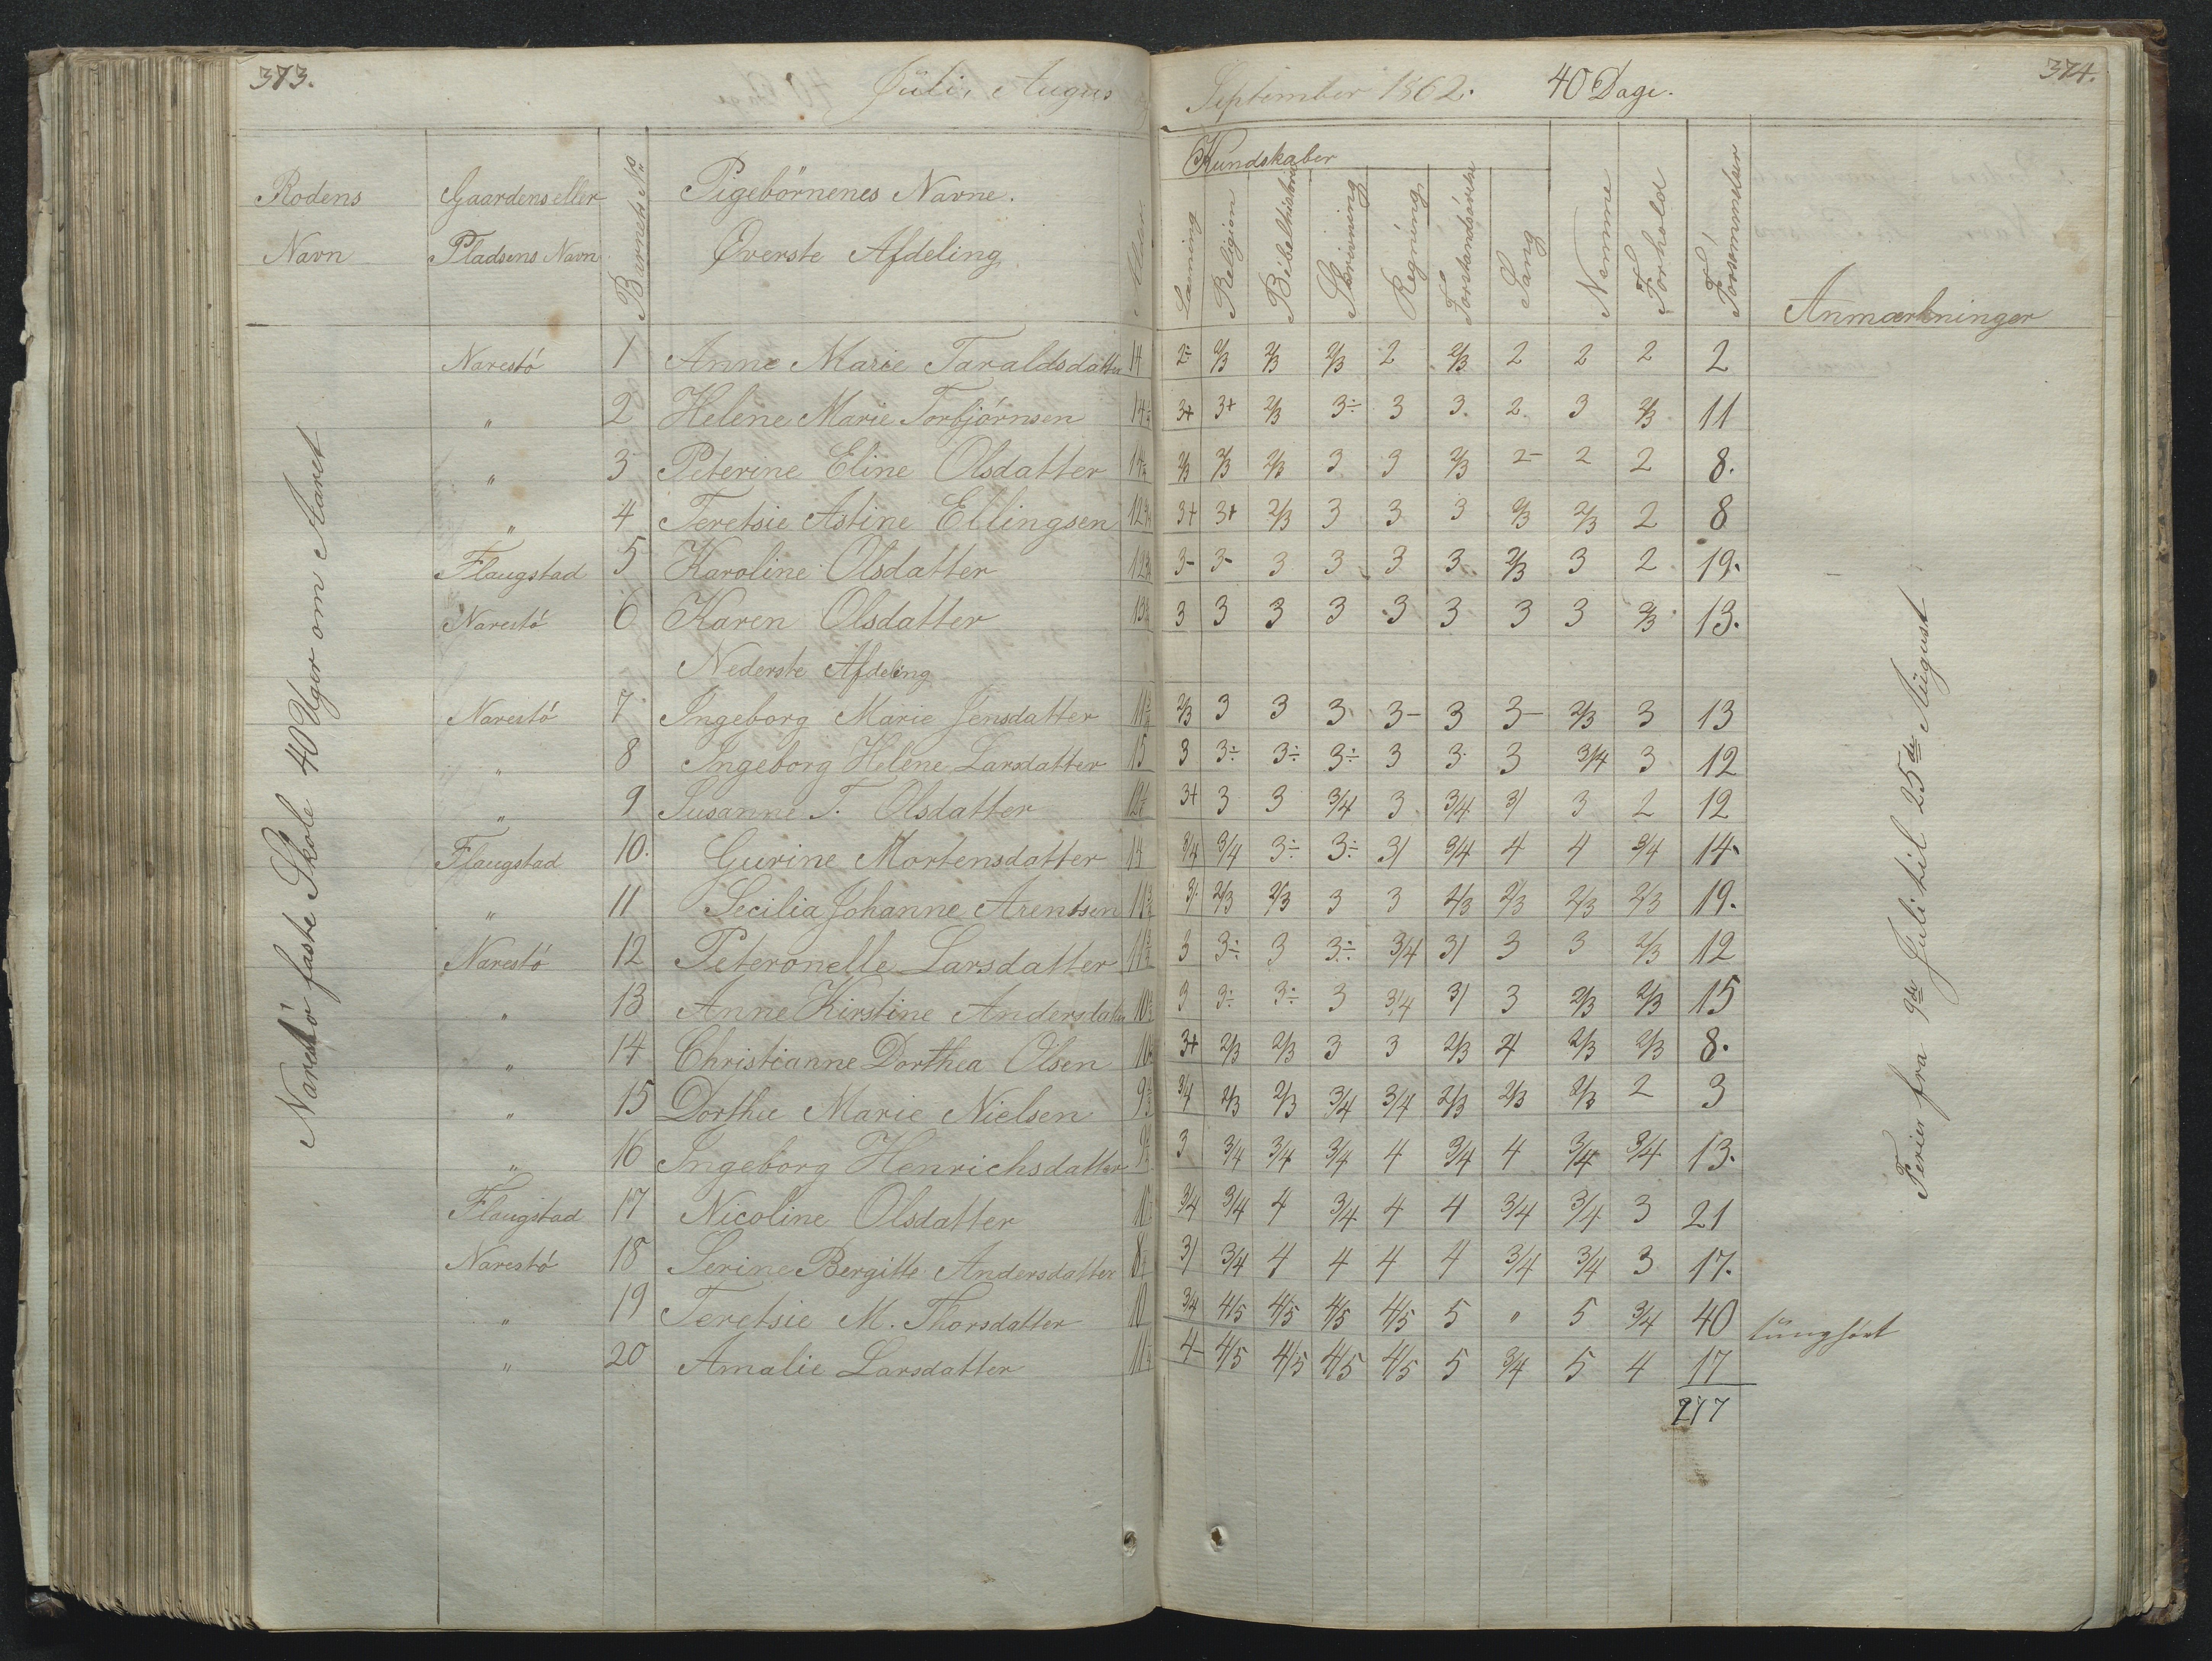 373.
Jüli, Augus
September 1862. 40 Dage.
374.
Rodens Navn
Gaardens eller Pladsens Navn
Barnets No
Pigebörnenes Navne.
Överste Afdeling
Alder
Kundskaber
Læsning
Religion
Bibelhistorie
Skrivning
Regning
Forstandsøvelse
Sang
Nemme
Forhold
Forsømmelser
Anmærkninger
Narestö faste Skole 40 Uger om Aaret
Narestö 1 Anne Marie Taraldsdatter 14 2- 2/3 2/3 2/3 2 2/3 2 2 2 2
" 2 Helene Marie Torbjörnsen 3+ 3+ 2/3 3÷ 3 3. 2. 3 2/3 11
" 3 Peterine Eline Olsdatter 2/3 2/3 2/3 3 3 2/3 2- 2 2 8.
" 4 Teretsie Astine Ellingsen 3+ 3+ 2/3 3 3 3 2/3 2/3 2 8
Flaugstad 5 Karoline Olsdatter 3- 3- 3 3 3 3 2/3 3 2 19.
Narestö 6 Karen Olsdatter 3 3 3 3 3 3 3 3 2/3 13.
Nederste Afdeling
Narestö 7 Ingeborg Marie Jensdatter 2/3 3 3 3 3- 3 3- 2/3 3 13
" 8 Ingeborg Helene Larsdatter 15 3 3÷ 3÷ 3÷ 3 3 3 3/4 3 12
" 9 Susanne T. Olsdatter 3+ 3 3 3/4 3 3/4 3/ 3 2 12
Flaugstad 10. Gurine Mortensdatter 14 3/4 3/4 3÷ 3÷ 3/ 3/4 4 4 3/4 14.
" 11 Secilia Johanne Arentsen 3/ 2/3 2/3 3 3 2/3 2/3 2/3 2/3 19.
Narestö 12 Peteronelle Larsdatter 3 3÷ 3 3÷ 3/4 3/ 3 3 2/3 12
" 13 Anne Kirstine Andersdatter 3 3÷ 3÷ 3 3/4 3/ 3 2/3 2/3 15
" 14 Christianne Dorthea Olsen 3+ 2/3 2/3 3 3 2/3 4 2/3 2/3 8.
" 15 Dorthe Marie Nielsen 3/4 2/3 2/3 3/4 3/4 2/3 2/3 2/3 2 3
" 16 Ingeborg Henrichsdatter 3 3/4 3/4 3/4 4 3/4 4 3/4 3/4 13.
Flaugstad 17 Nicoline Olsdatter 3/4 3/4 4 3/4 4 4 3/4 3/4 3 21
Narestö 18 Serine Bergitte Andersdatter 3/ 3/4 4 4 4 4 3/4 3/4 3 17.
" 19 Teretsie M. Thorsdatter 10 3/4 4/5 4/5 4/5 4/5 5 " 5 3/4 40 tünghört
" 20 Amalie Larsdatter 4- 4/5 4/5 4/5 4/5 5 3/4 5 4 17
277
Ferier fra 9de Juli til 25de Aügust